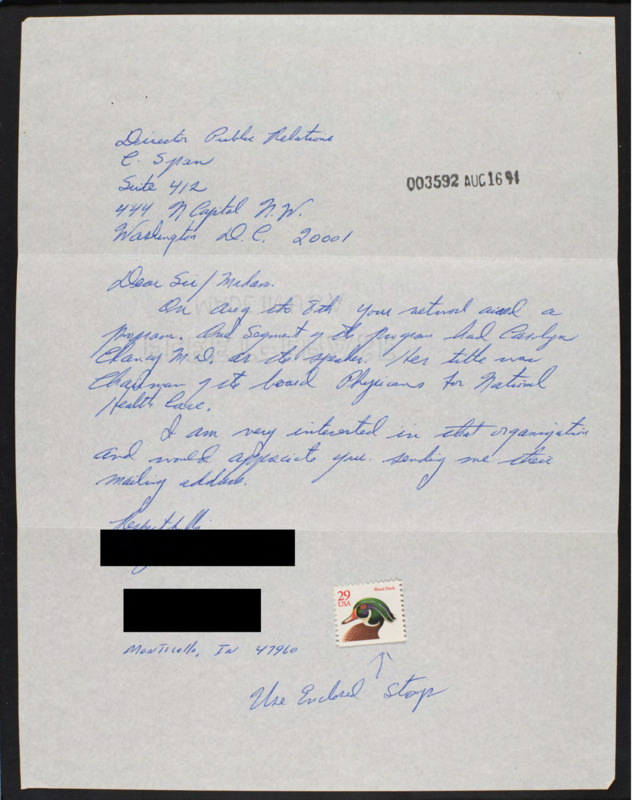 Director Public Relations
C. Span
Suite 412
444 N Capital N.W.
Washington D.C. 20001
003592 AUG 16 94
Dear Sir/Madam.
On Aug the 8th your network aired a
program. One Segment of the program had Carolyn
Clancy M.D. as the speaker. Her title was
Chairman of the board Physicians for National
Health Care.
I am very interested in that organization
and would appreciate you sending me their
mailing address.
Respectfully
Monticello, IN 47960
29
USA
Wood Duck
Use Enclosed Stamp